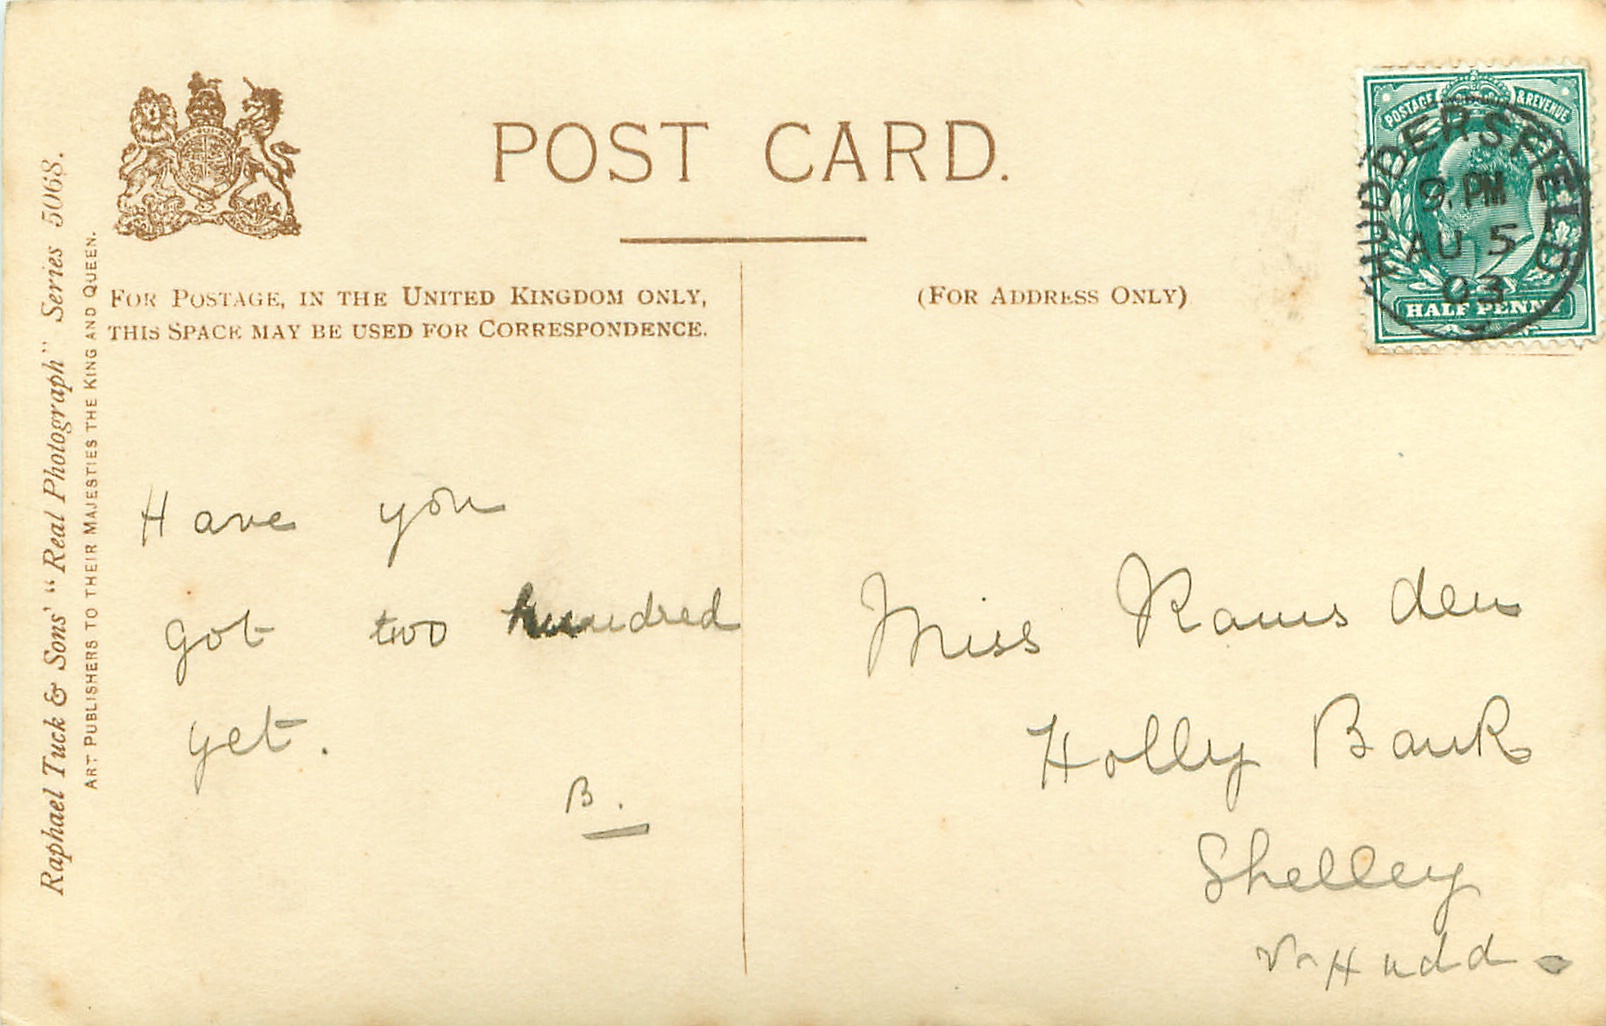 POST CARD.
FOR POSTAGE, IN THE UNITED KINGDOM ONLY,
THIS SPACE MAY BE USED FOR CORRESPONDENCE.
(FOR ADDRESS ONLY)
POSTAGE & REVENUE
HALF PENNY
HUDDERSFIELD
9. PM
AU 5
03
Raphael Tuck & Sons' "Real Photograph" Series 5068.
ART PUBLISHERS TO THEIR MAJESTIES THE KING AND QUEEN.
Have you
got two hundred
yet.
B.
Miss Ramsden
Holly Bank
Shelley
Hudd.